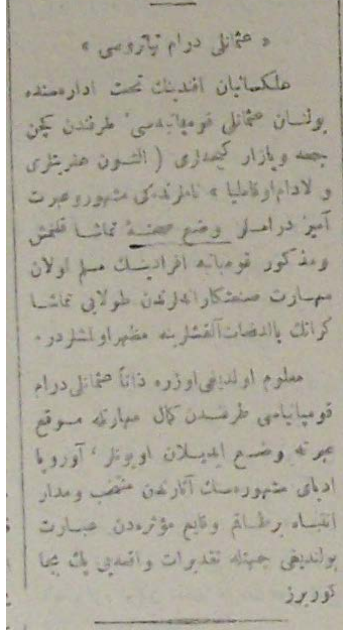 « عثمانلی درام تیاتروسی »
علکسانیان افندینك تحت اداره‌سنده
بولنان عثمانلی قومپانیه‌سی طرفندن کچن
جمعه و بازار کیجه‌لری ( آلتون
و لادام اوقاملیا » ناملرنده‌کی مشهور و عبرت
آمیز دراملر وضع صحنهٔ تماشا قلنمش
ومذکور قومپانیه افرادینك مسلم اولان
مهارت صنعتکارانه‌لرندن طولایی تماشا
کرانك بالدفعات آلقشلرینه مظهر اولمشلردر ٠
معلوم اولدیغی اوزره ذاتاً عثمانلی درام
قومپانیاسی طرفندن کمال مهارتله موقع
عبرته وضع ایدیلان اویونلر ، آوروپا
ادبای مشهوره‌سنك آثارندن منتخب ومدار
انتباه برطاقم وقایع مؤثره‌دن عبارت
بولندیغی جهتله تقدیرات واقعه‌یی پك بجا
کوریرز